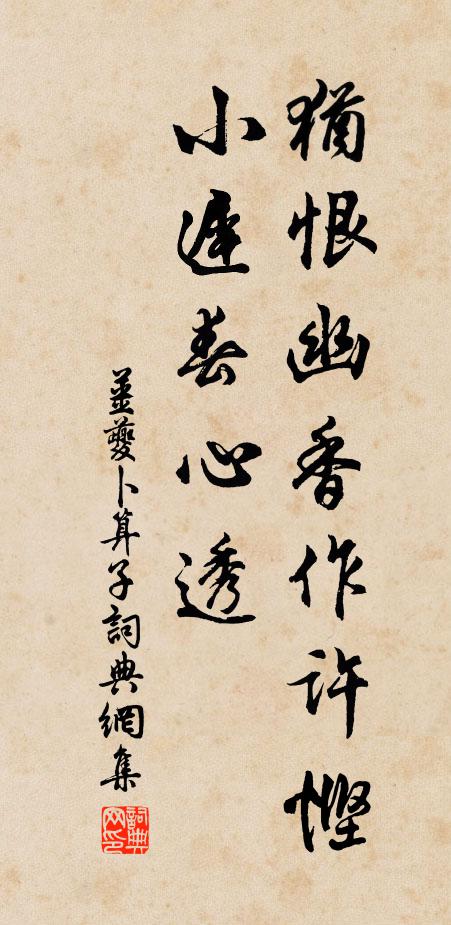 猶恨幽香作許慳
小遲春心透
姜夔卜算子詞典網集
詞典网印